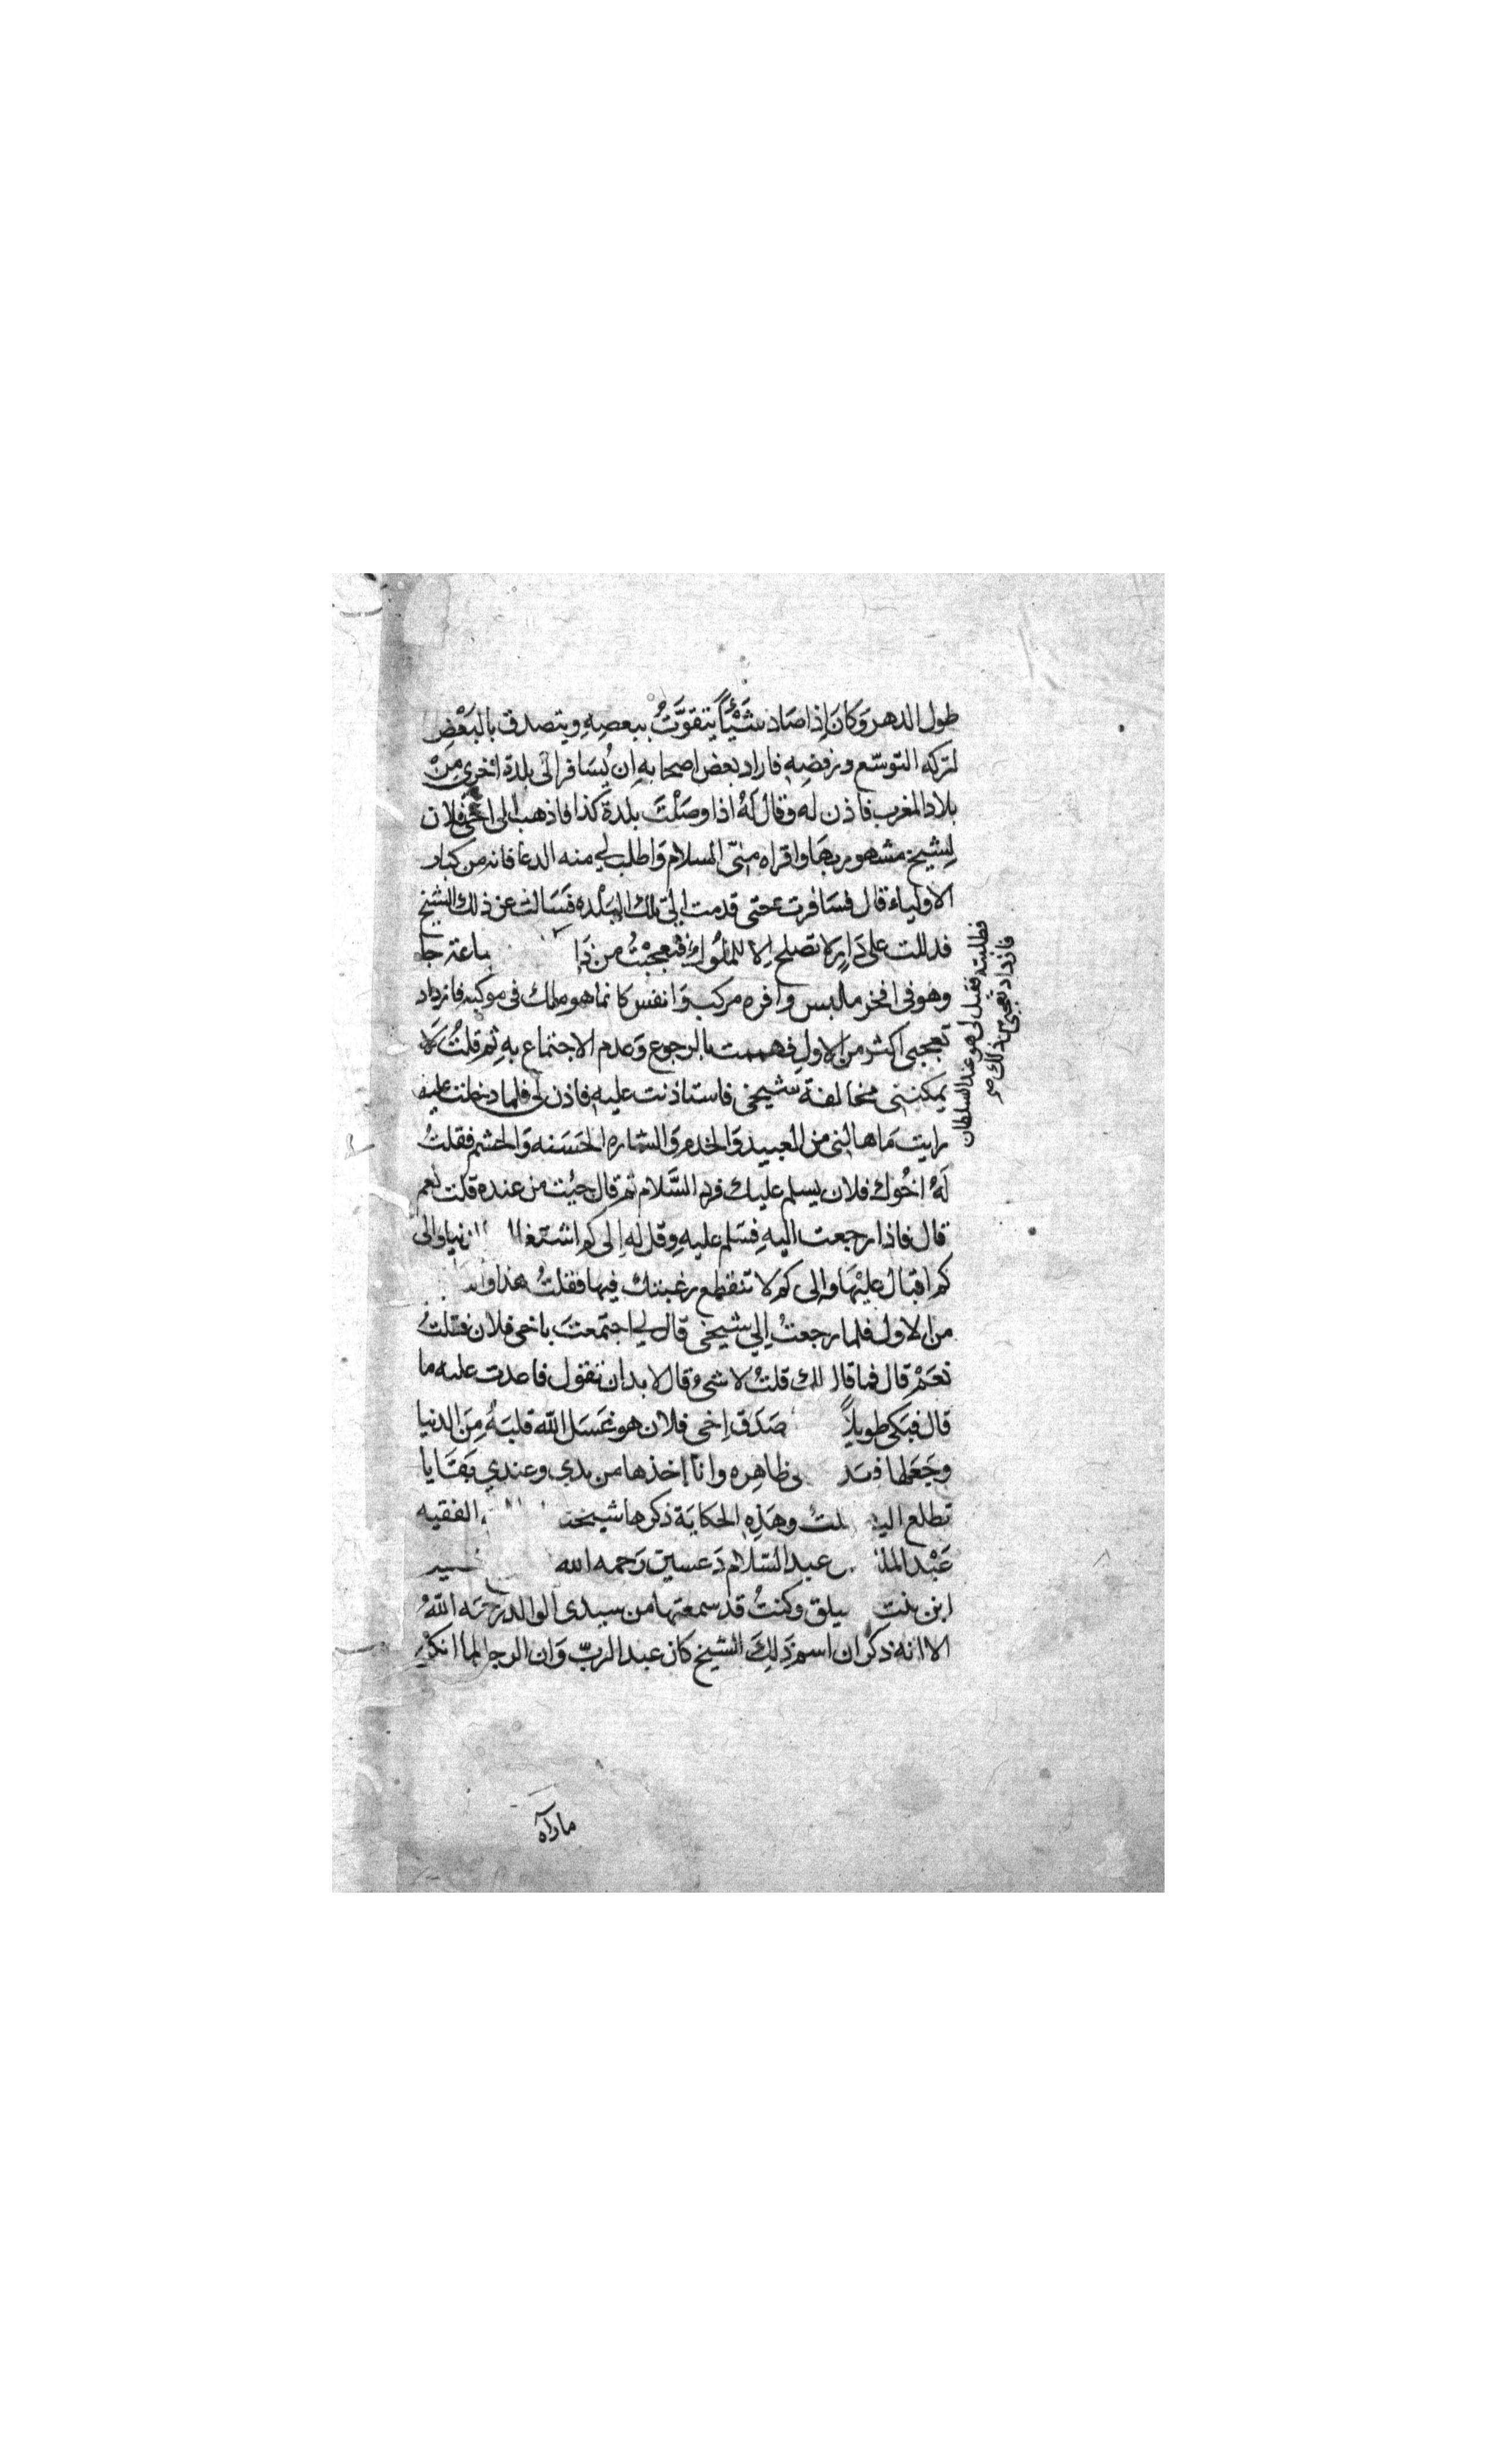 طول الدهر وَكانَ إذا صَاد شَيْئاً يَتقوَّتُ ببعضِهِ ويتصدق بالبَعْضِ
لتركه التوسّع ورفضِهِ فاراد بعض اصحابهِ ان يُسَافر الى بلدة اخرى مِنْ
بلاد المغرب فاذن له وقال لَهُ اذا وصَلْتَ بلدة كذا فاذهب الى اخى فلان
لِشيخ مشهور بهَا واقراه منىّ السلام وَاطلب لي منه الدعا فانه من كبار
الاولياء قال فسَافرت حتى قدمت الى تلك البَلْده فسَالت عن ذلك الشيخ
فدللت على دَارٍ لا تصلح إلا للملُوك فتعجبْتُ من ذَا ساعة جا
وهو فى افخر ملبس وافره مركب وَانفس كانما هو ملك فى موكبه فازداد
تعجبى اكثر من الاول فهممت بالرجوع وَعدم الاجتماع بهِ ثم قلتُ لا
يمكننى مخالفة شيخى فاستاذنت عليه فاذن لى فلما دخلت عليه
رايت مَا هالنى من العبيد وَالخدم وَالشاره الحَسَنه وَالحشم فقلتُ
لَهُ اخُوك فلان يسلم علَيك فرد السَّلام ثم قال جئت من عنده قلت نعم
قال فاذا رجعت اليهِ فسَلم عليهِ وقل له إلى كم اشتغا نيا والى
كم اقبال عليْهَا وإلى كم لا تنقطع رغبتك فيها فقلتُ هذا والله
من الاول فلما رجعتُ إلي شيخى قال لي اجتمعتَ باخى فلان فقلتُ
نعَمْ قال فما قال لك قلتُ لا شئ قال لا بد ان تقول فاعدت عليه ما
قال فبَكى طويلاً صَدَق اخى فلان هو غسَل الله قلبَهُ مِنَ الدنيا
وجَعَلها فىيد ى ظاهِره وانا اخذها من يدي وعندي بقَايا
تطلع اليه لتُ وهَذِهِ الحكايَة ذكرها شيخنا الفقيه
عَبْد المل عبد السّلام دَعسين رَحمه الله
ابن بنت ميلق وكنتُ قد سمعتها من سيدى الوالد رحمَه اللّهُ
الا انه ذكر ان اسم ذَلِكَ الشيخ كان عبد الربّ وَان الرجل لما انكر
فطلبته فقيل لى هو عند السلطان
فازداد تعجبى من ذلك صح
ما رآه